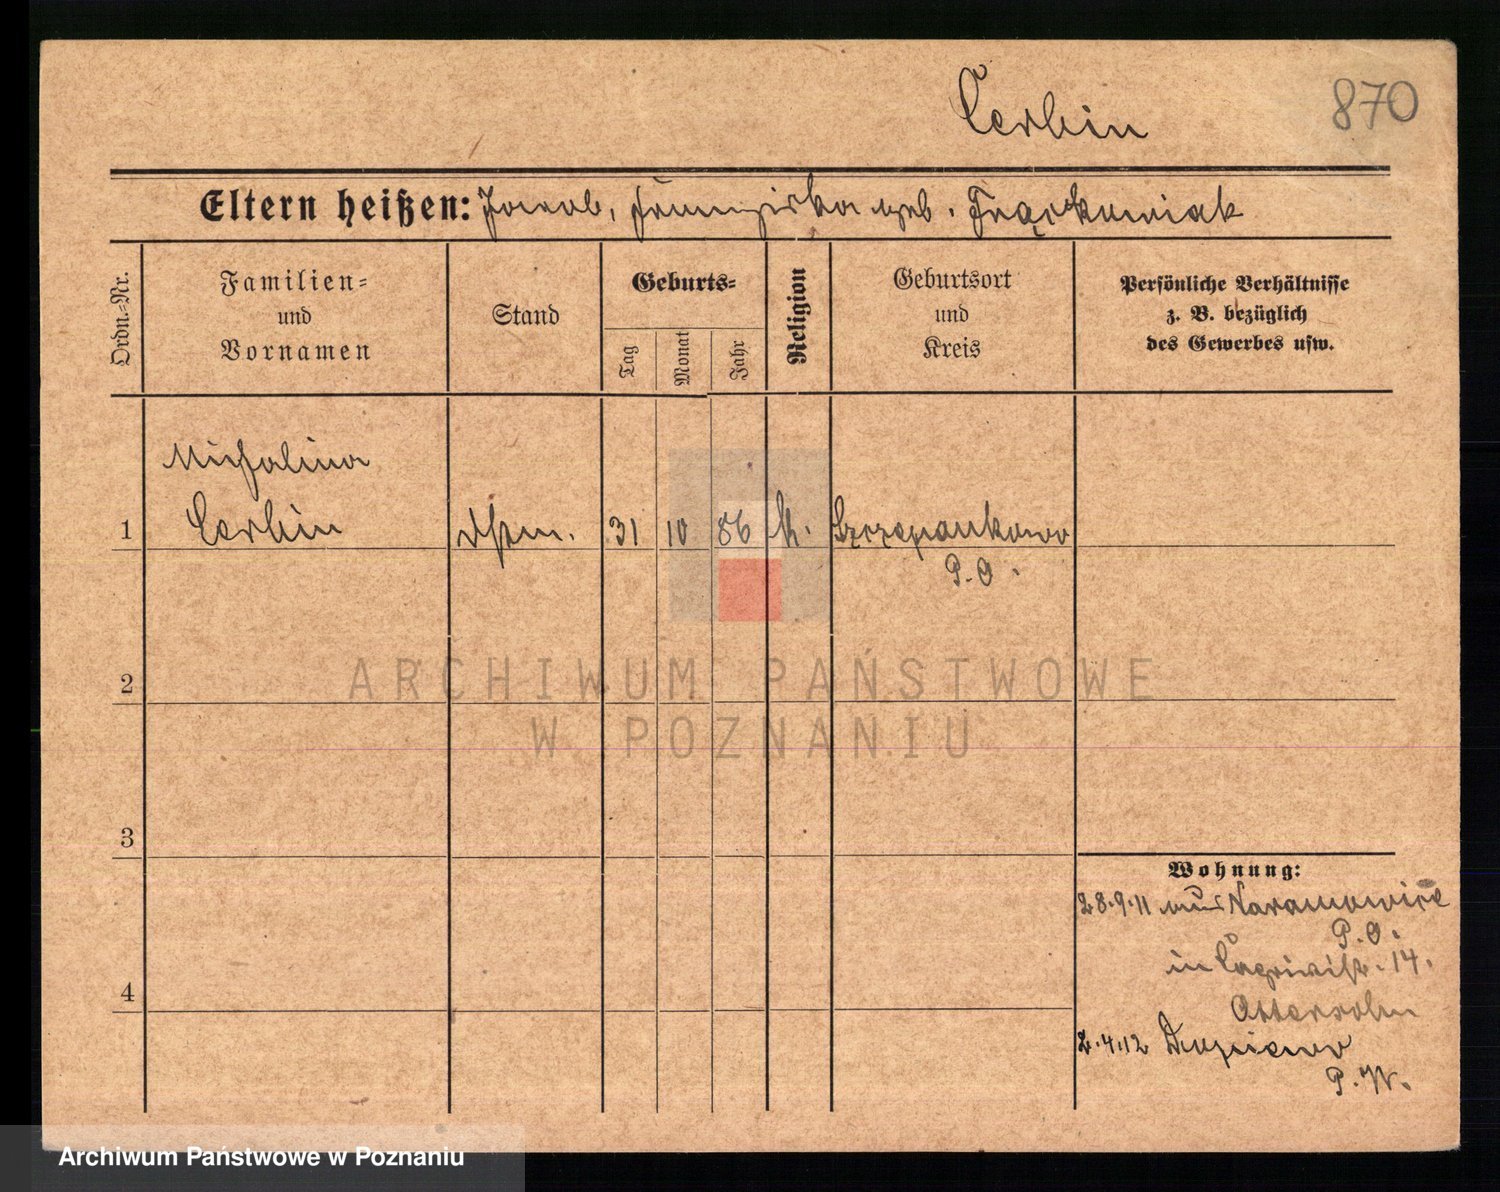 870
Cerbin
Eltern heißen: Jacob, Franziska geb. Frąckowiak
Ordn.-Nr.
Familien-
und
Vornamen
Stand
Geburts-
Tag
Monat
Jahr
Religion
Geburtsort
und
Kreis
Persönliche Verhältnisse
z. B. bezüglich
des Gewerbes usw.
Michalina
1 Cerbin 31 10 86 k. Szczepankowo
P. O.
2
3
4
Wohnung:
28.9.11 aus Naramowice
P. O.
in 14.
2.4.12 Dupiewo
P. W.
ARCHIWUM PAŃSTWOWE
W POZNANIU
Archiwum Państwowe w Poznaniu